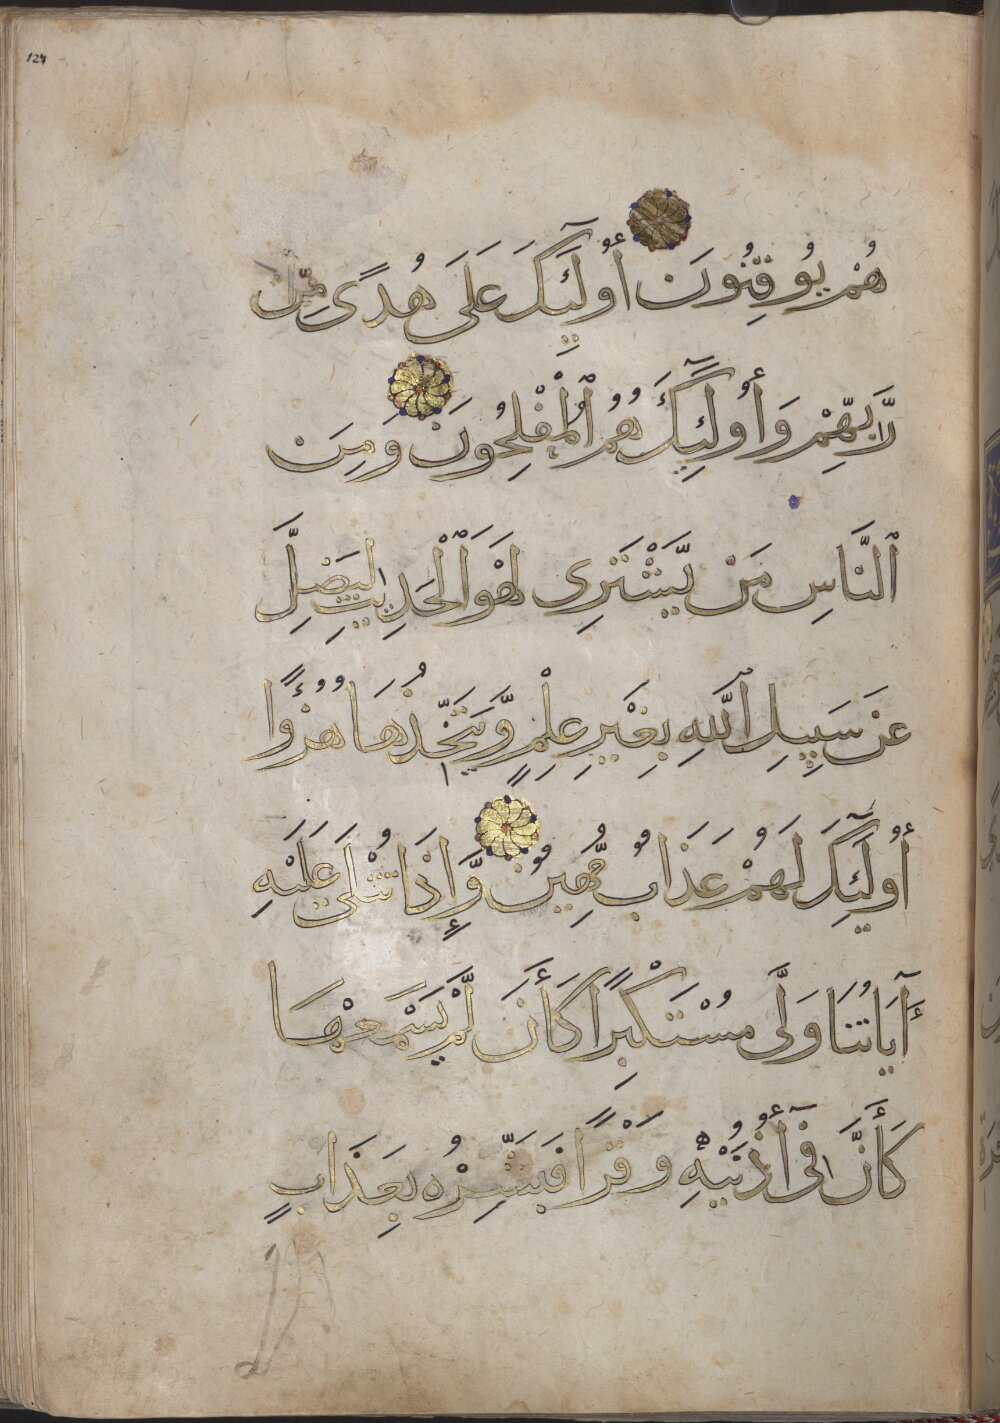 127
هُمْ يُوقِنُونَ أُولَٰئِكَ عَلَىٰ هُدًى مِّن
رَّبِّهِمْ وَأُولَٰئِكَ هُمُ ٱلْمُفْلِحُونَ وَمِنَ
ٱلنَّاسِ مَن يَّشْتَرِى لَهْوَ ٱلْحَدِيثِ لِيُضِلَّ
عَن سَبِيلِ ٱللَّهِ بِغَيْرِ عِلْمٍ وَّيَتَّخِذُهَا هُزُؤًا
أُولَٰئِكَ لَهُمْ عَذَابٌ مُّهِينٌ وَّإِذَا تُتْلَىٰ عَلَيْهِ
آيَاتُنَا وَلَّىٰ مُسْتَكْبِرًا كَأَن لَّمْ يَسْمَعْهَا
كَأَنَّ فِىٓ أُذُنَيْهِ وَقْرًا فَبَشِّرْهُ بِعَذَابٍ